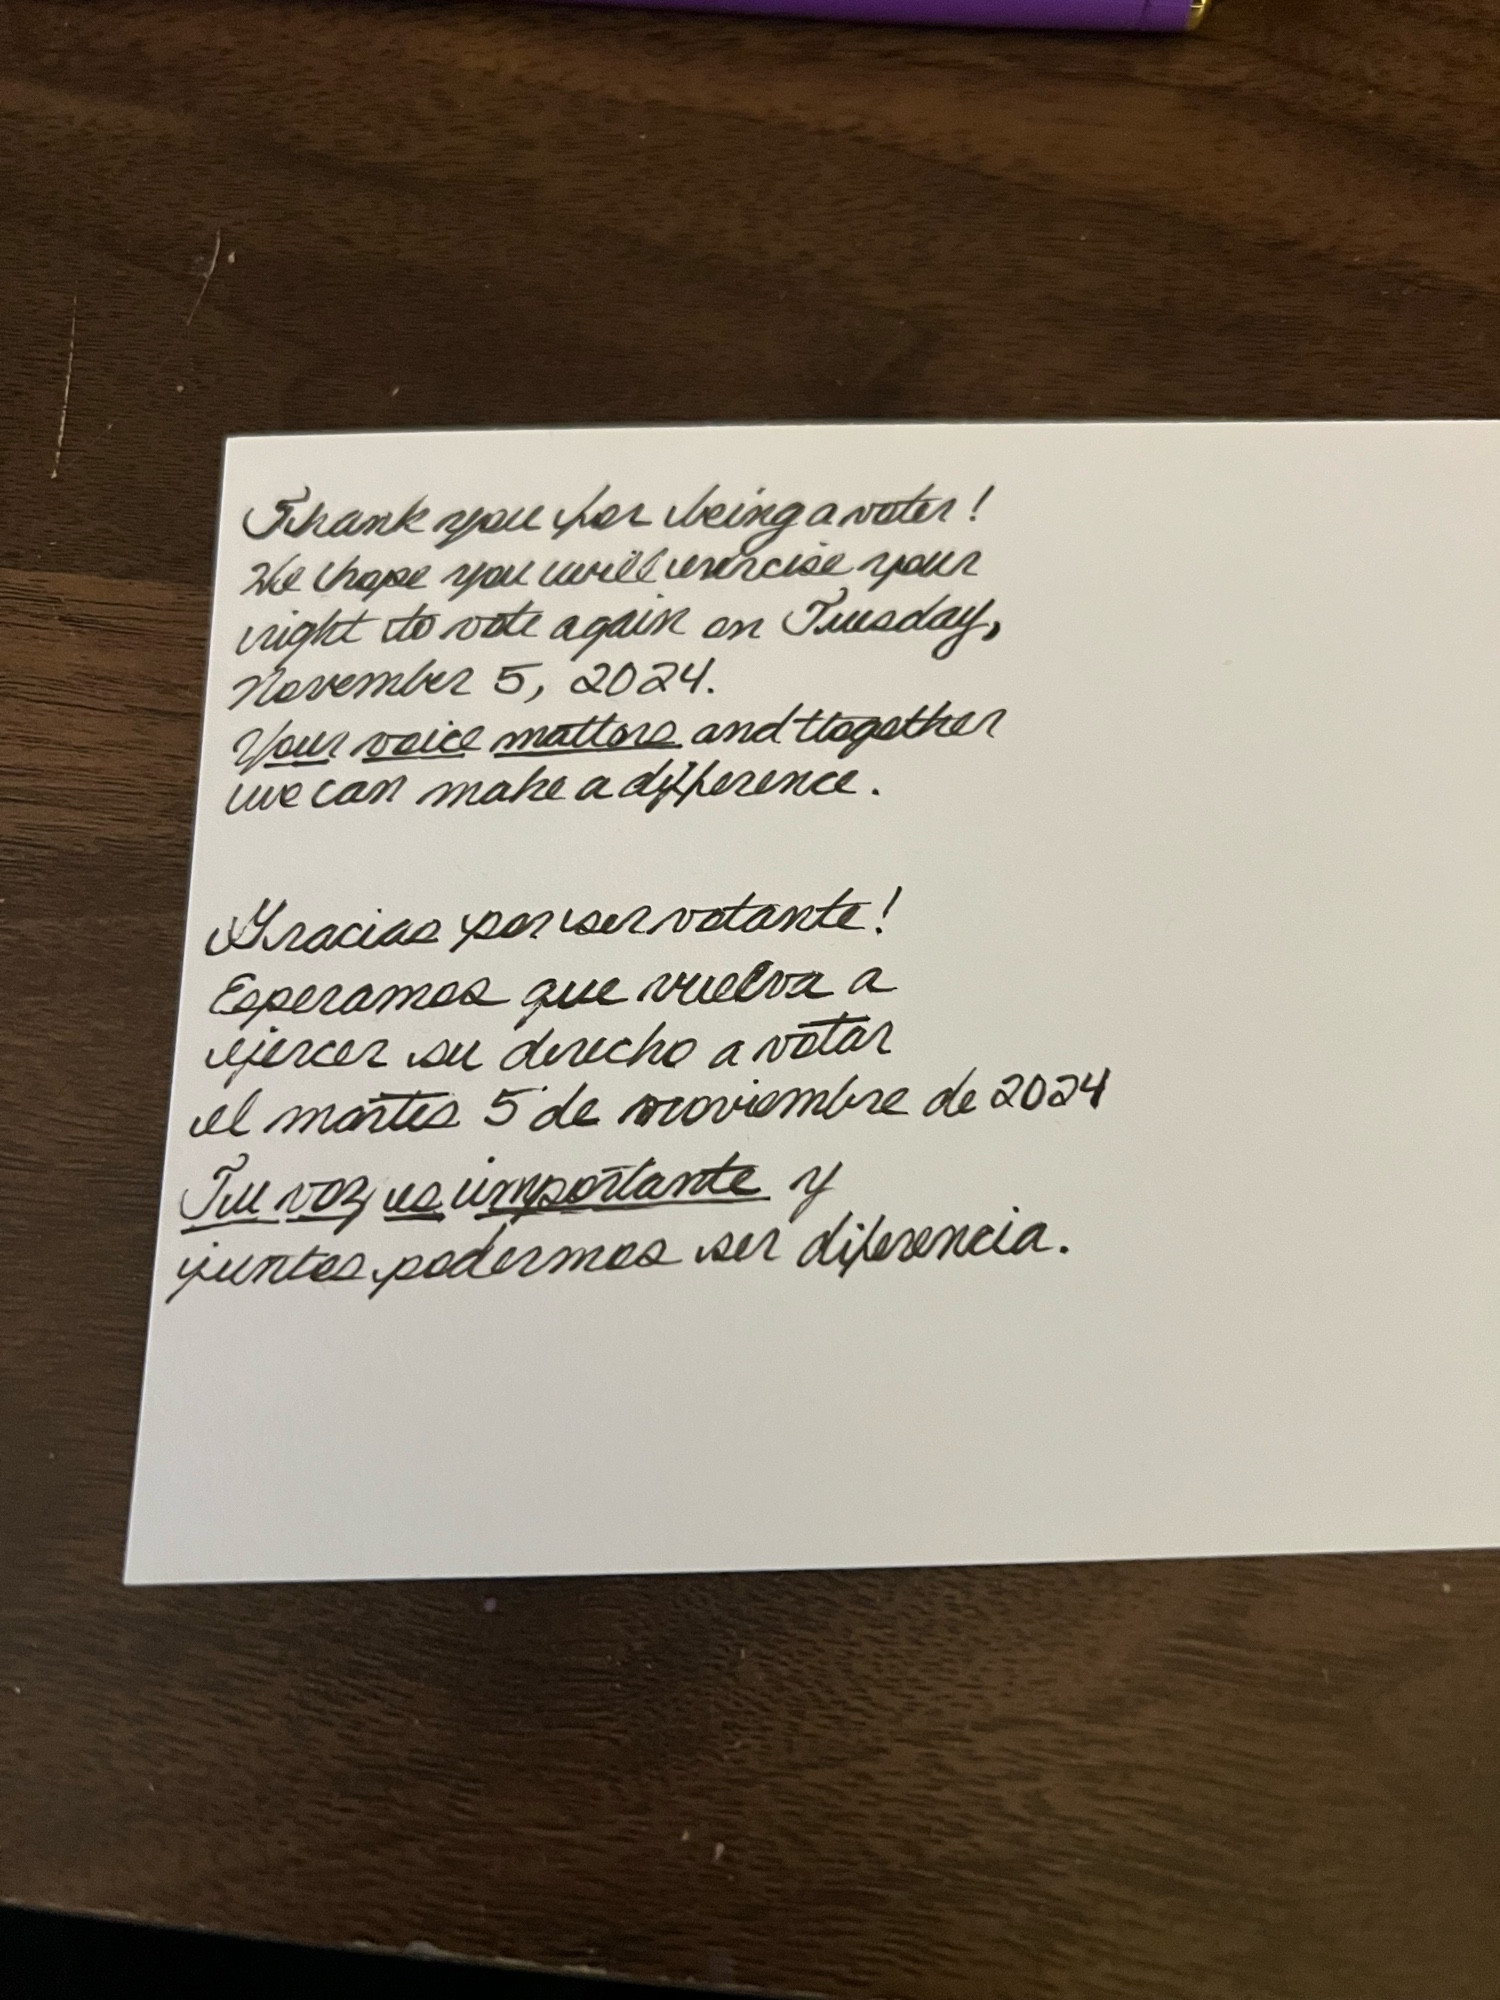 Thank you for being a voter!
We hope you will exercise your
right to vote again on Tuesday,
November 5, 2024.
Your voice matters and ttogether
we can make a difference.
Gracias por ser votante!
Esperamos que vuelva a
ejercer su derecho a votar
el martes 5 de noviembre de 2024
Tu voz es importante y
juntos podermos ser diferencia.